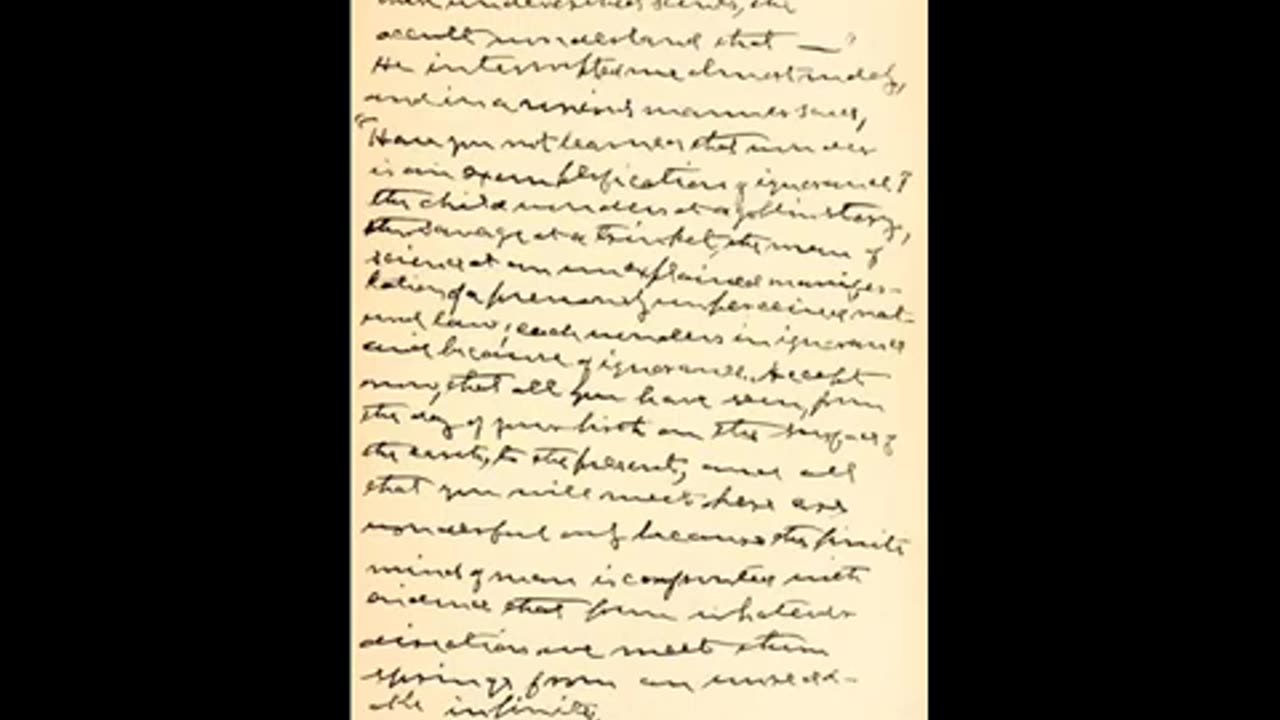 occult wonderland that —"
He interrupted me almost rudely,
and in a serious manner said,
"Have you not learned that wonder
is an exemplification of ignorance?
The child wonders at a goblin story,
the savage at a trinket, the man of
science at an unexplained manifes-
tation of a previously unperceived nat-
ural law; each wonders in ignorance
and because of ignorance. Accept
now, that all you have seen, from
the day of your birth on the surface of
the earth, to the present, and all
that you will meet here are
wonderful only because the finite
mind of man is confronted with
evidence that from whatever
direction we meet them
springs from an unseea-
ble infinity